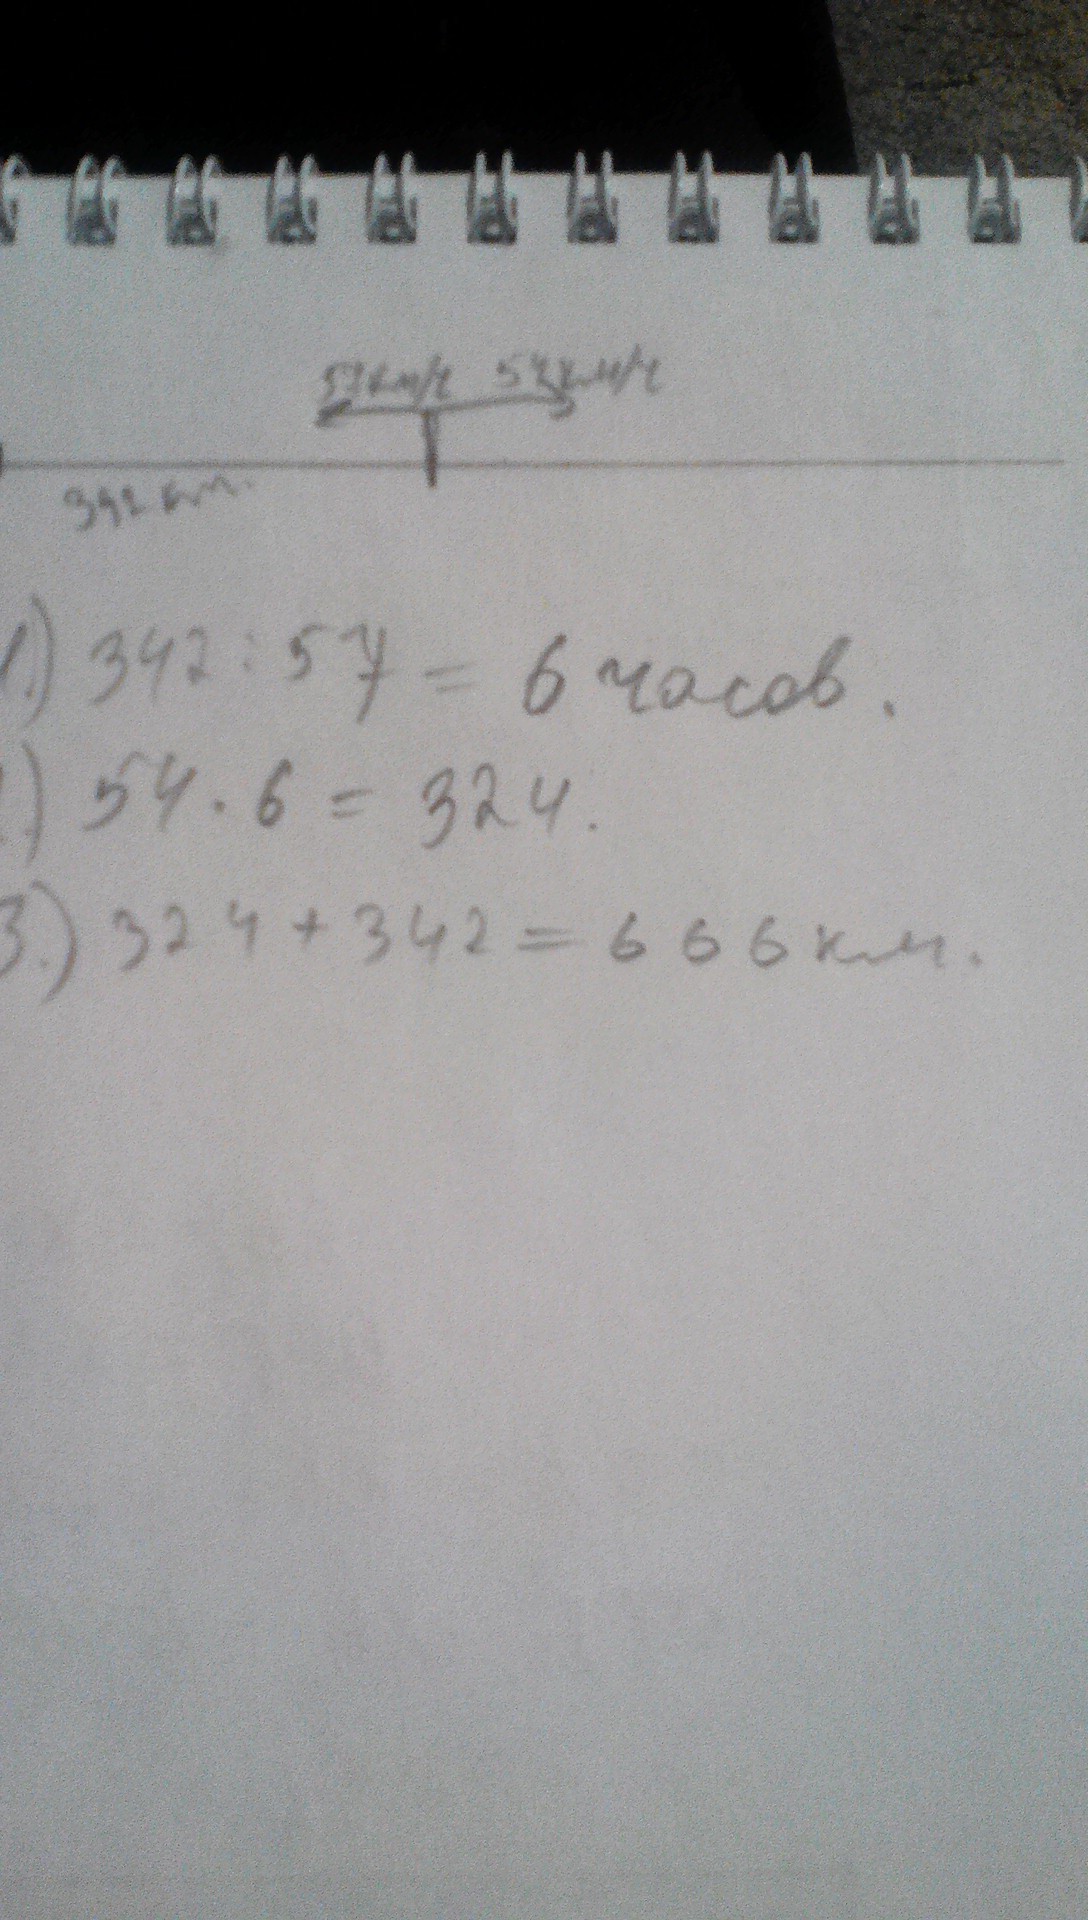 57км/ч 54км/ч
342 км.
1.) 342 : 57 = 6 часов.
.) 54 . 6 = 324.
3.) 324 + 342 = 666 км.